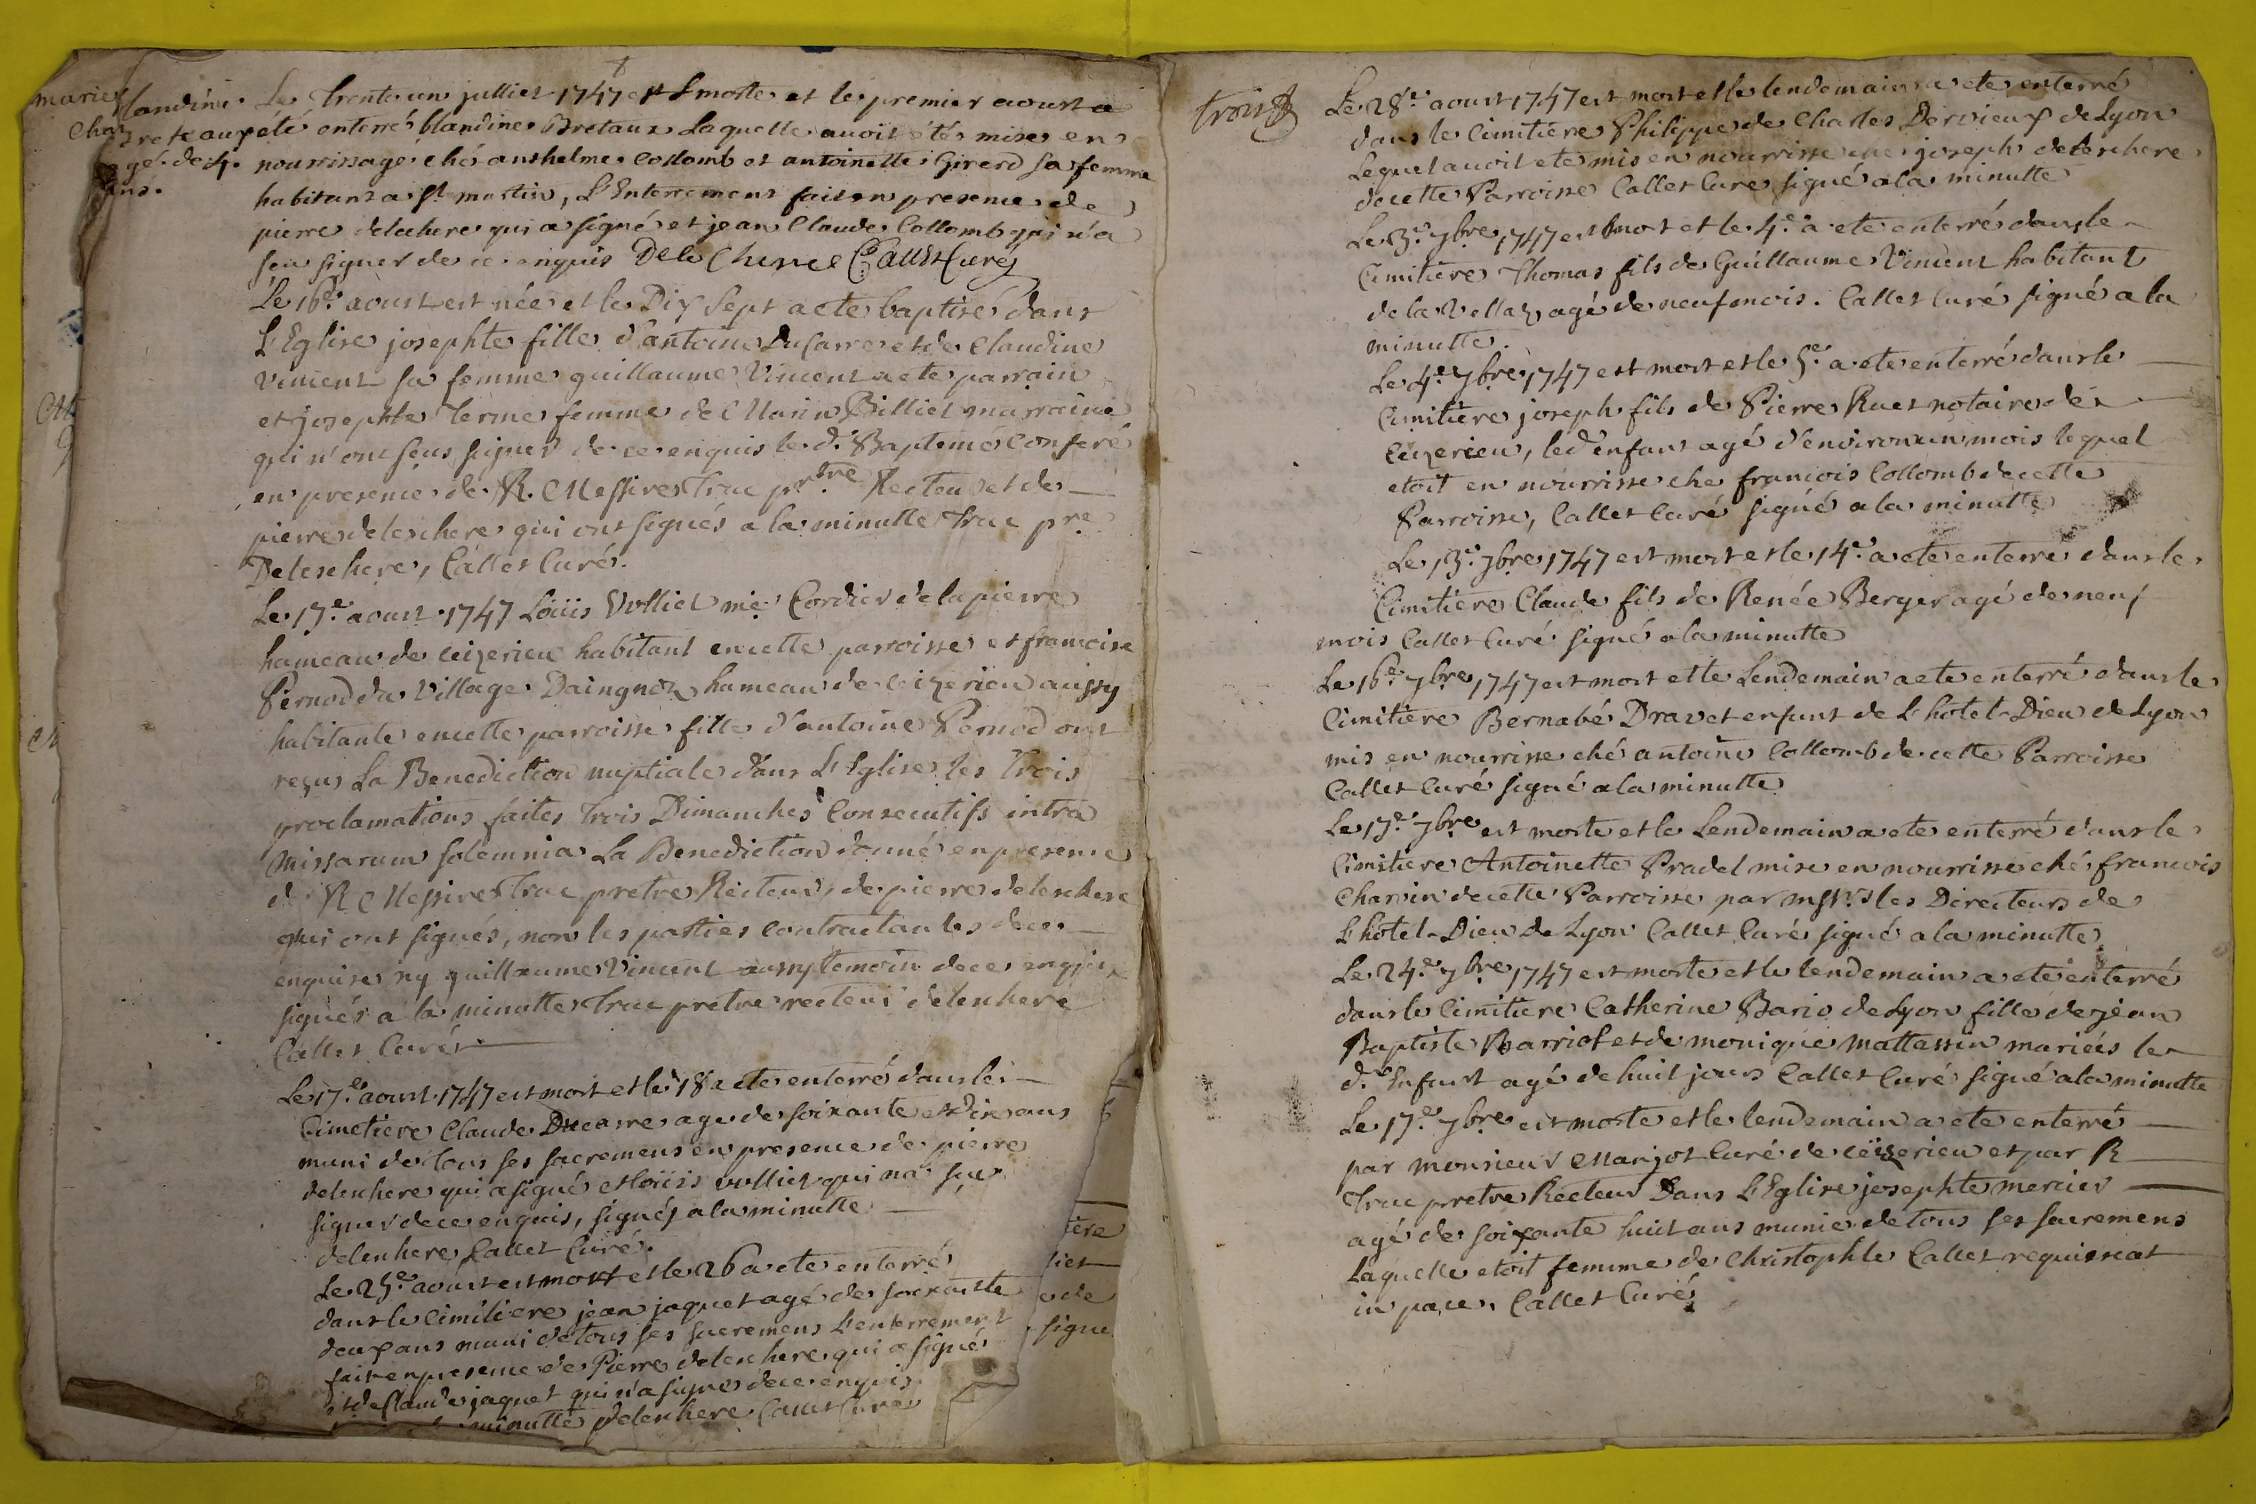 blandine
bretaux
agé de 4.
ans.
Le trente un julliet 1747 est morte et le premier aoust a
été enterré blandine Bretaux Laquelle avoit étés mise en
nourrissage ché anthelme Collomb et antoinette Girerd sa femme
habitant a St martin, L'Enterrement fait en presence de
pierre deleschere qui a signé et jean Claude Collomb qui n'a
seu signer de ce enquis Deleschere Callet Curé
Le 16e aoust est née et le Dix Sept a ete baptisé dans
L'Eglise josephte fille d'antoine Ducarre et de Claudine
vincent sa femme guillaume Vincent a ete parrain
et josephte terme femme de Marin Billiet marraine
qui n'ont seus signer de ce enquis le d. Bapteme Conferé
en presence de R. Messire Truc prtre Recteur et de
pierre deleschere qui ont signés a la minutte Truc pre
Deleschere, Callet Curé.
Le 17e aoust 1747 Loüis Vulliet me Cordier de la pierre
hameau de ceizerieu habitant en cette parroisse et francoise
Pernod du Village Daingnoz hameau de ceizerieu aussy
habitante en cette parroisse fille d'antoine Pernod ont
reçus La Benediction nuptiale dans L'Eglise les Trois
proclamations faites Trois Dimanches Consecutifs intra
missarum solemnia La Benediction donné en presence
de R Messire Truc pretre Recteur, de pierre deleschere
qui ont signés, non les parties Contractantes de ce
enquise ny guillaume Vincent aussy temoin de ce enquis
signés a la minutte Truc pretre recteur deleschere
Callet Curé
Le 17e aoust 1747 est mort et le 18 a ete enterré dans le
Cimetiere Claude Ducarre age de soixante et dix ans
muni de tous ses sacremens en presence de pierre
deleschere qui a signé et loüis vulliet qui n'a sçu
signer de ce enquis, signés a la minutte
deleschere Callet Curé.
Le 25e aoust est mort et le 26 a ete enterré
dans le Cimitiere jean jaquet agé de soixante
deux ans muni de tous ses sacremens L'enterrement
fait en presence de Pierre deleschere qui a signé
et de Claude jaquet qui n'a signé de ce enquis
minutte deleschere Callet Curé
tiere
liet
e de
signe
trois
Le 28e aoust 1747 est mort et le lendemain a ete enterré
dans le Cimitiere Philippe de Charles Dervieux de Lyon
Lequel avoit ete mis en nourrisse joseph deleschere
de cette Parroisse Callet Cure signé a la minutte
Le 3e 7bre 1747 est mort et le 4e a ete enterré dans le
Cimitiere Thomas fils de Guillaume Vincent habitant
de la Vellaz agé de neuf mois. Callet Curé signé a la
minutte.
Le 4e 7bre 1747 est mort et le 5e a ete enterré dans le
Cimitiere joseph fils de Pierre Ruet notaire de
Ceizerieu, led enfant agé d'environ un mois lequel
etoit en nourrisse che francois Collomb de cette
Parroisse, Callet Curé signé a la minutte
Le 13e 7bre 1747 est mort et le 14e a ete enterre dans le
Cimitiere Claude fils de Renée Berger agé de neuf
mois Callet Curé signé a la minutte
Le 16e 7bre 1747 est mort et le Lendemain a ete enterré dans le
Cimitiere Bernabé Dravet enfant de L'hotel-Dieu de Lyon
mis en nourrisse ché antoine Collomb de cette Parroisse
Callet Curé signé a la minutte
Le 17e 7bre est morte et le Lendemain a ete enterré dans le
Cimitiere Antoinette Pradel mise en nourrisse ché francois
Charvin de cette Parroisse par msrs les Directeurs de
L'hotel-Dieu de Lyon Callet Curé signé a la minutte
Le 24e 7bre 1747 est morte et le lendemain a ete enterré
dans le Cimitiere Catherine Bario de Lyon fille de jean
Baptiste Barriot et de monique mattassin mariés le
d. Enfant agé de huit jours Callet Curé signé a la minutte
Le 17e 7bre est morte et le lendemain a ete enterré
par monsieur Marjot Curé de ceizerieu et par R
Truc pretre Recteur Dans L'Eglise josephte mercier
agé de soixante huit ans munie de tous ses sacremens
Laquelle etoit femme de Christophle Callet requiescat
in pace. Callet Curé